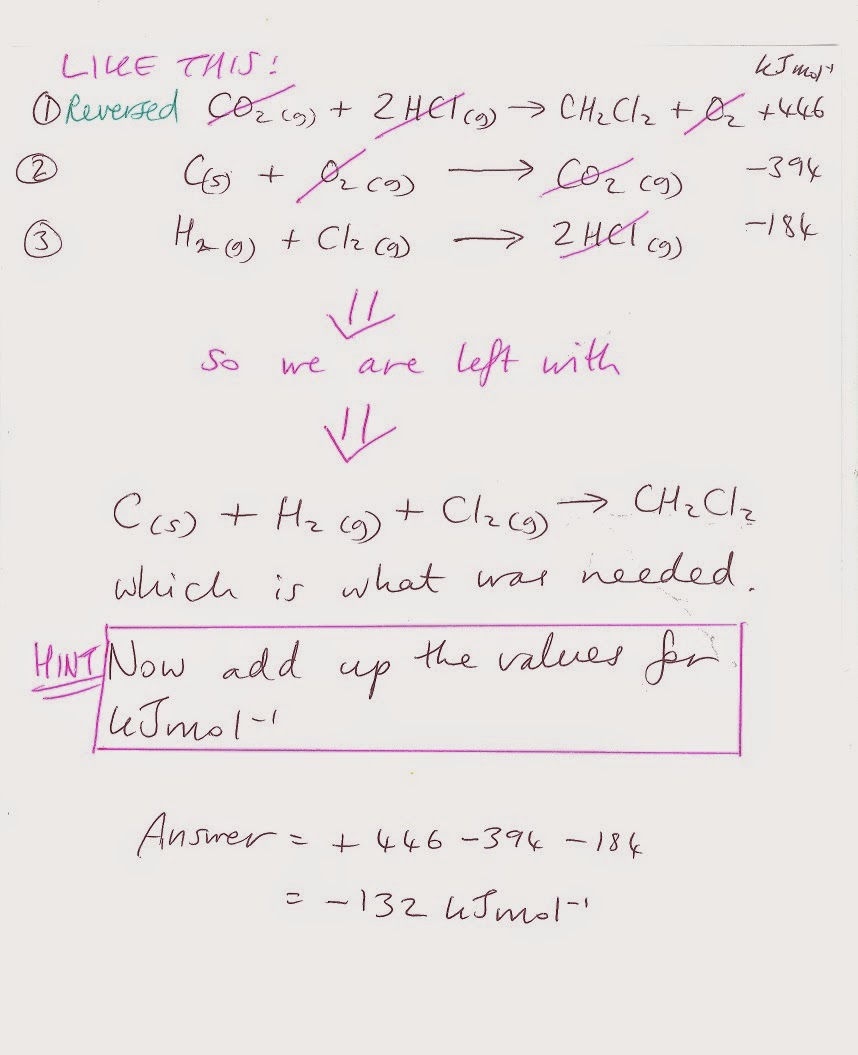 LIKE THIS!
kJmol⁻¹
① Reversed CO₂(g) + 2HCl(g) → CH₂Cl₂ + O₂ +446
② C(s) + O₂(g) → CO₂(g) -394
③ H₂(g) + Cl₂(g) → 2HCl(g) -184
⇓
so we are left with
⇓
C(s) + H₂(g) + Cl₂(g) → CH₂Cl₂
which is what was needed.
HINT Now add up the values for
kJmol⁻¹
Answer = + 446 -394 -184
= -132 kJmol⁻¹